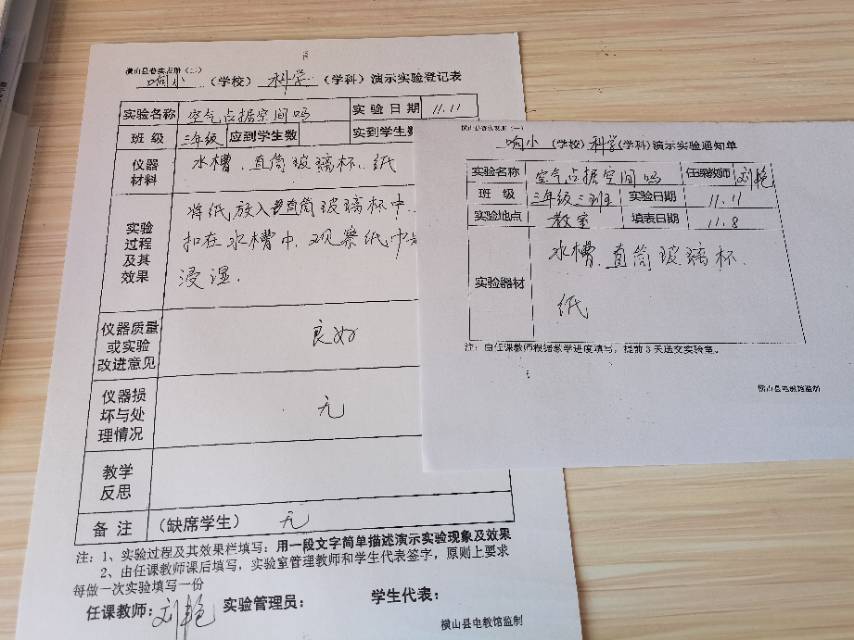 横山县普实表册（二）
响小（学校）科学（学科）演示实验登记表
实验名称 空气占据空间吗 实验日期 11.11
班级 三年级 应到学生数 实到学生数
仪器材料 水槽、直筒玻璃杯、纸
实验过程及其效果
将纸放入直筒玻璃杯中.
扣在水槽中.观察纸巾
浸湿.
仪器质量或实验改进意见 良好
仪器损坏与处理情况 无
教学反思
备注 （缺席学生） 无
注：1、实验过程及其效果栏填写：用一段文字简单描述演示实验现象及效果
2、由任课教师课后填写，实验室管理教师和学生代表签字，原则上要求
每做一次实验填写一份
任课教师：刘艳 实验管理员： 学生代表：
横山县电教馆监制
横山县普实表册（一）
响小（学校）科学（学科）演示实验通知单
实验名称 空气占据空间吗 任课教师 刘艳
班级 三年级三班 实验日期 11.11
实验地点 教室 填表日期 11.8
实验器材 水槽.直筒玻璃杯.
纸
注：由任课教师根据教学进度填写，提前3天送交实验室。
横山县电教馆监制